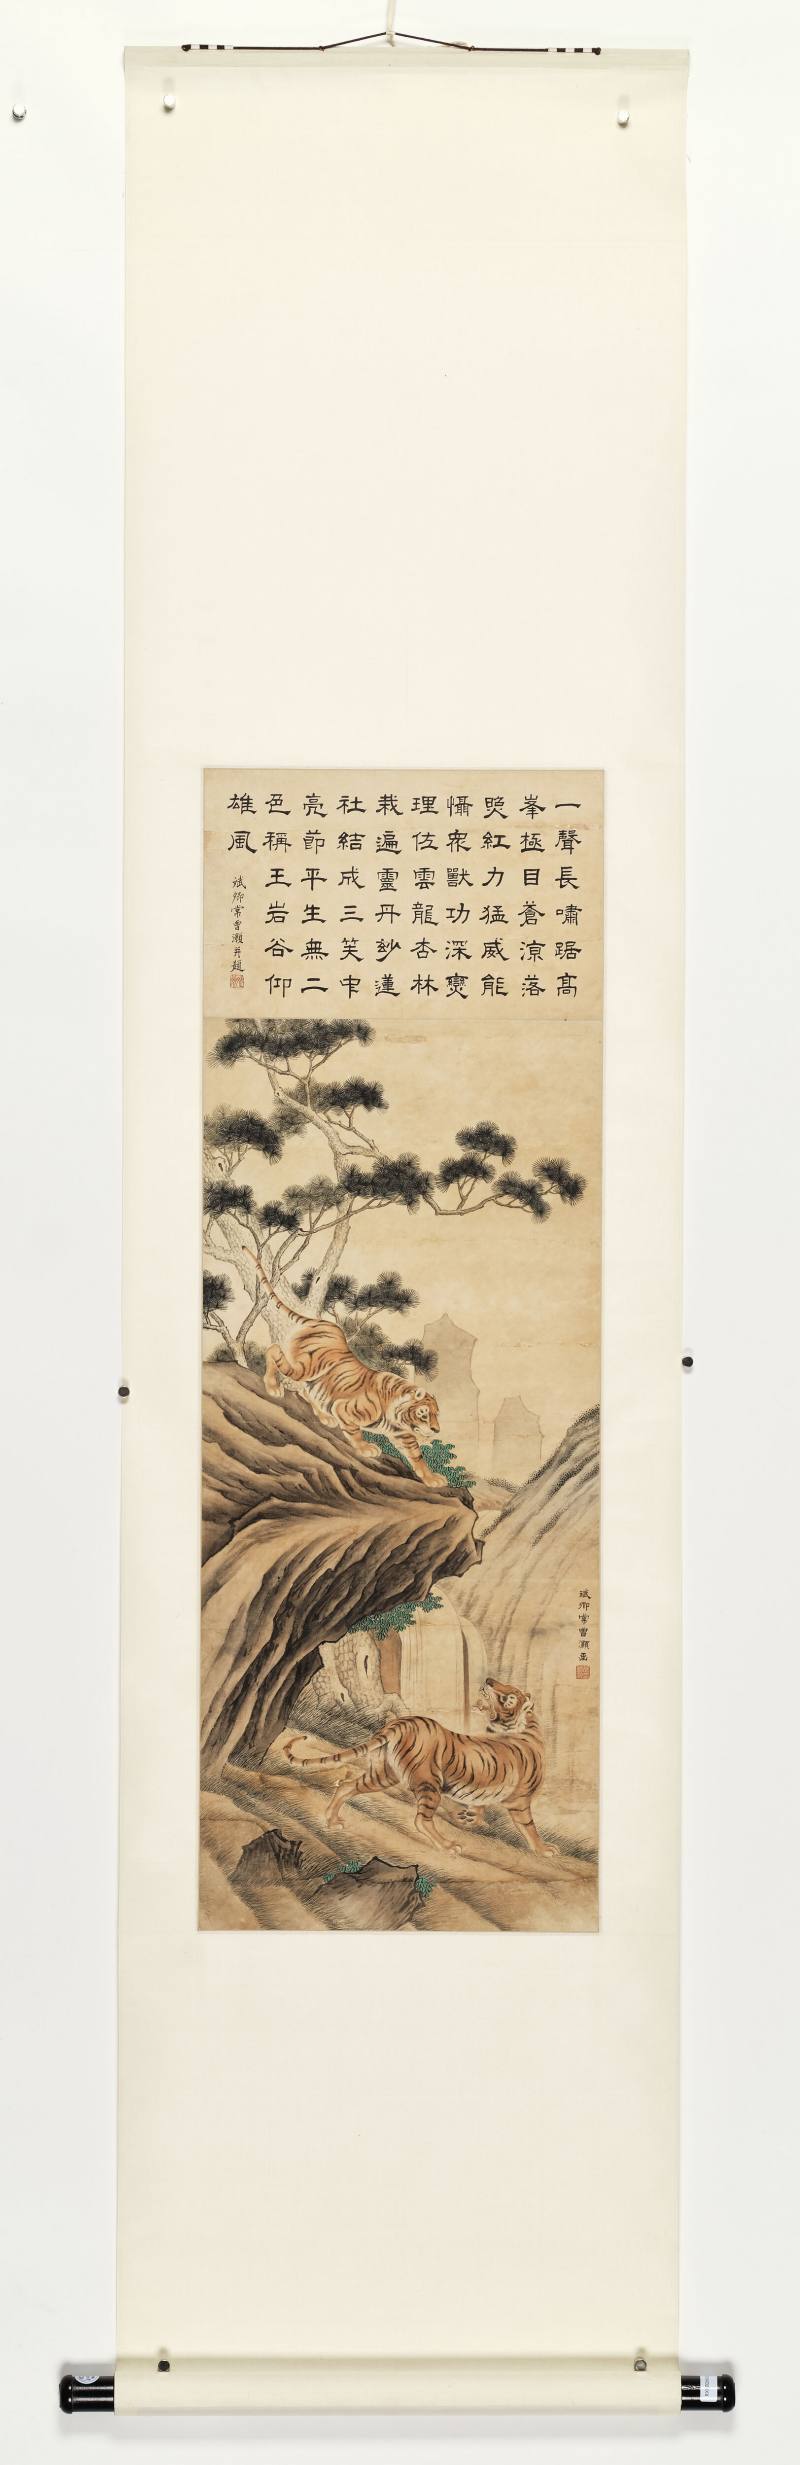 一聲長嘯踞高
峯極目蒼涼落
㷇紅力猛威能
懾衆獸功深燮
理佐雲龍杏林
栽遍靈丹妙蓮
社結成三笑中
亮節平生無二
色稱王岩谷仰
雄風
斌卿常曾灝并題
斌卿常曾灝画